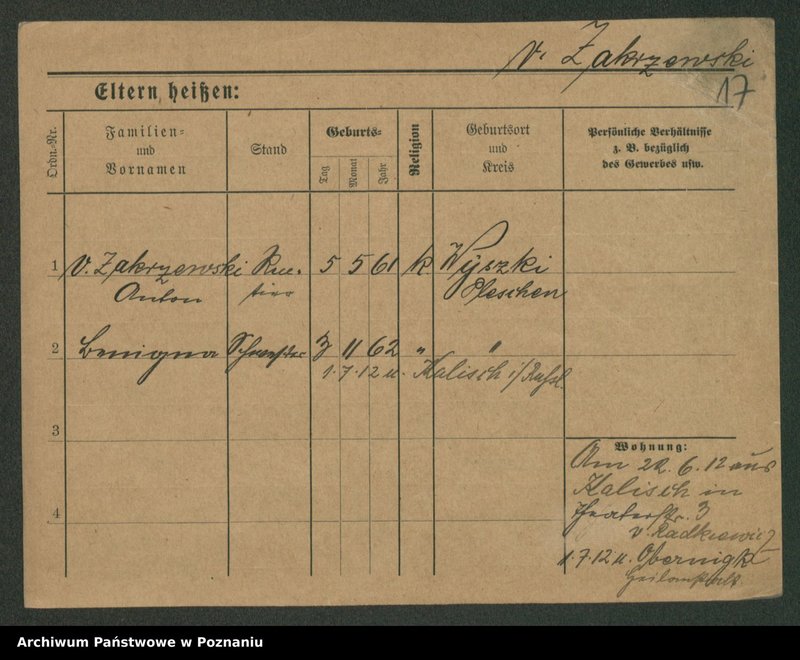 v. Zakrzewski
17
Eltern heißen:
Ordn.-Nr.
Familien-
und
Vornamen
Stand
Geburts-
Tag
Monat
Jahr
Religion
Geburtsort
und
Kreis
Persönliche Verhältnisse
z. B. bezüglich
des Gewerbes usw.
1 v. Zakrzewski Ren- 5 5 61 k Wyszki
Anton tier Pleschen
2 Benigna Schwester 3 11 62 " "
1.7.12 u. Kalisch i/Rußl.
3
4
Wohnung:
Am 22.6.12 aus
Kalisch in
Theaterstr. 3
v. Radkiewicz
1.7.12 u. Obernigk
Heilanstalt
Archiwum Państwowe w Poznaniu